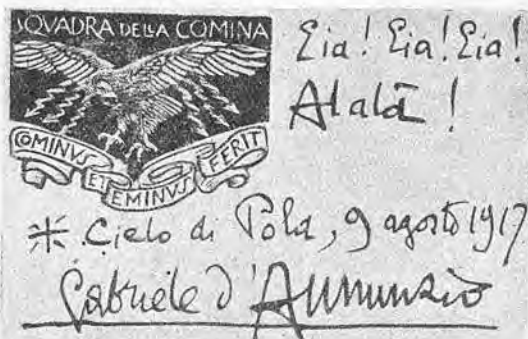 SQVADRA DELLA COMINA
COMINVS ET EMINVS FERIT
Eia! Eia! Eia!
Alalà!
* Cielo di Pola, 9 agosto 1917
Gabriele d'Annunzio